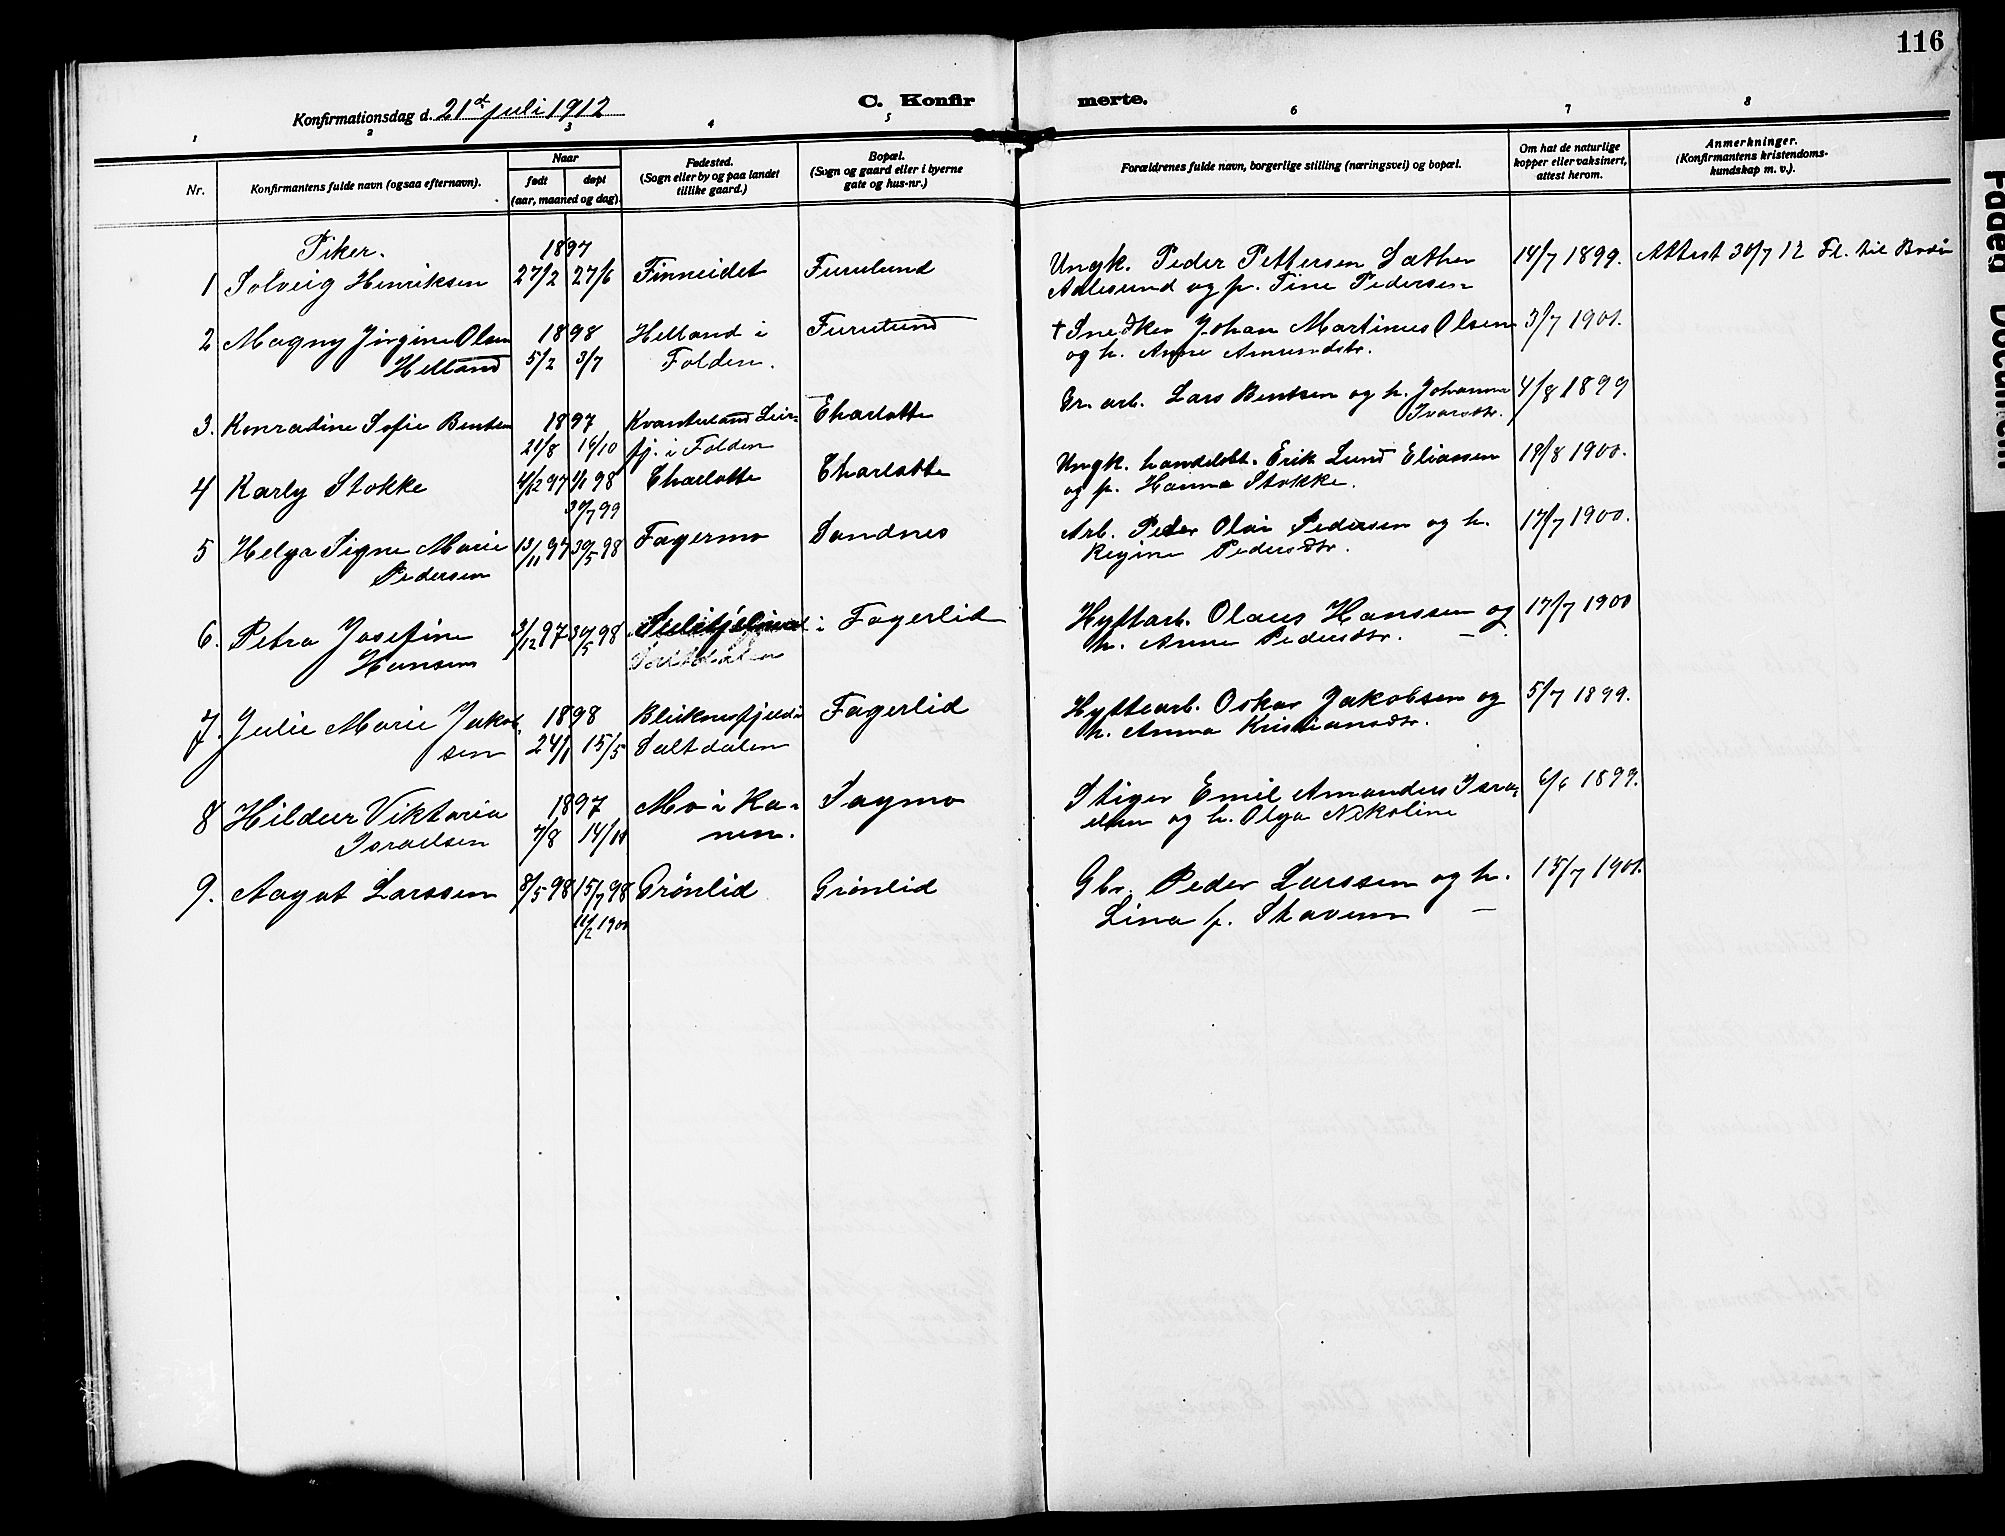 116
Konfirmationsdag d. 21d juli 1912
C. Konfir merte.
1 2 3 4 5 6 7 8
Nr.
Konfirmantens fulde navn (ogsaa efternavn).
Naar
født døpt
(aar, maaned og dag)
Fødested.
(Sogn eller by og paa landet
tillike gaard.)
Bopæl.
(Sogn og gaard eller i byerne
gate og hus-nr.)
Forældrenes fulde navn, borgerlige stilling (næringsvei) og bopæl.
Om hat de naturlige
kopper eller vaksinert,
attest herom.
Anmerkninger.
(Konfirmantens kristendoms-
kundskap m. v.).
Piker. 1897
1 Solveig Henriksen 27/2 27/6 Finneidet Furulund Ungk. Peder Pettersen Sæther 14/7 1899. Attest 30/7 12 Fl. til Bodø
Aalesund og p. Tine Pedersen
2 Magny Jørgine Olsen 1898 Helland i Furulund † Snedker Johan Martinus Olsen 3/7 1901.
Helland 5/2 3/7 Folden. og h. Anne Amundsdtr.
3. Konradine Sofie Bentsen 1897 Kvanteland Leir- Charlotte Gr. arb. Lars Bentsen og h. Johanna 4/8 1899
21/8 16/10 fj. i Folden Ivarsdtr.
4 Karly Stokke 4/12 97 1/1 98 Charlotte Charlotte Ungk. handelsbt. Erik Lund Eliassen 18/8 1900.
30/7 99 og p. Hanna Stokke.
5 Helga Signe Marie 13/11 97 30/5 98 Fagermo Sandnes Arb. Peder Olai Pedersen og h. 17/7 1900.
Pedersen Regine Pedersdtr.
6. Petra Josefine 3/12 97 30/5 98 Sulitjelma i Fagerlid Hyttarb. Olaus Hanssen og 17/7 1900
Hansen Saltdalen h. Anne Pedersdtr.
7. Julie Marie Jakob- 1898 Bleiknesfjeld i Fagerlid Hyttearb. Oskar Jakobsen og 5/7 1899.
sen 24/1 15/5 Saltdalen h. Anna Kristiansdtr.
8 Hildur Viktoria 1897 Mo i Ra- Fagmo Stiger Emil Amandus Isra- 6/6 1899.
Israelsen 7/8 14/11 nen. elsen og h. Olga Nikoline
9. Aagot Larssen 8/5 98 15/7 98 Grønlid Grønlid Gbr. Peder Larssen og h. 15/7 1901.
11/2 1900 Lina f. Skavem
Faded Document